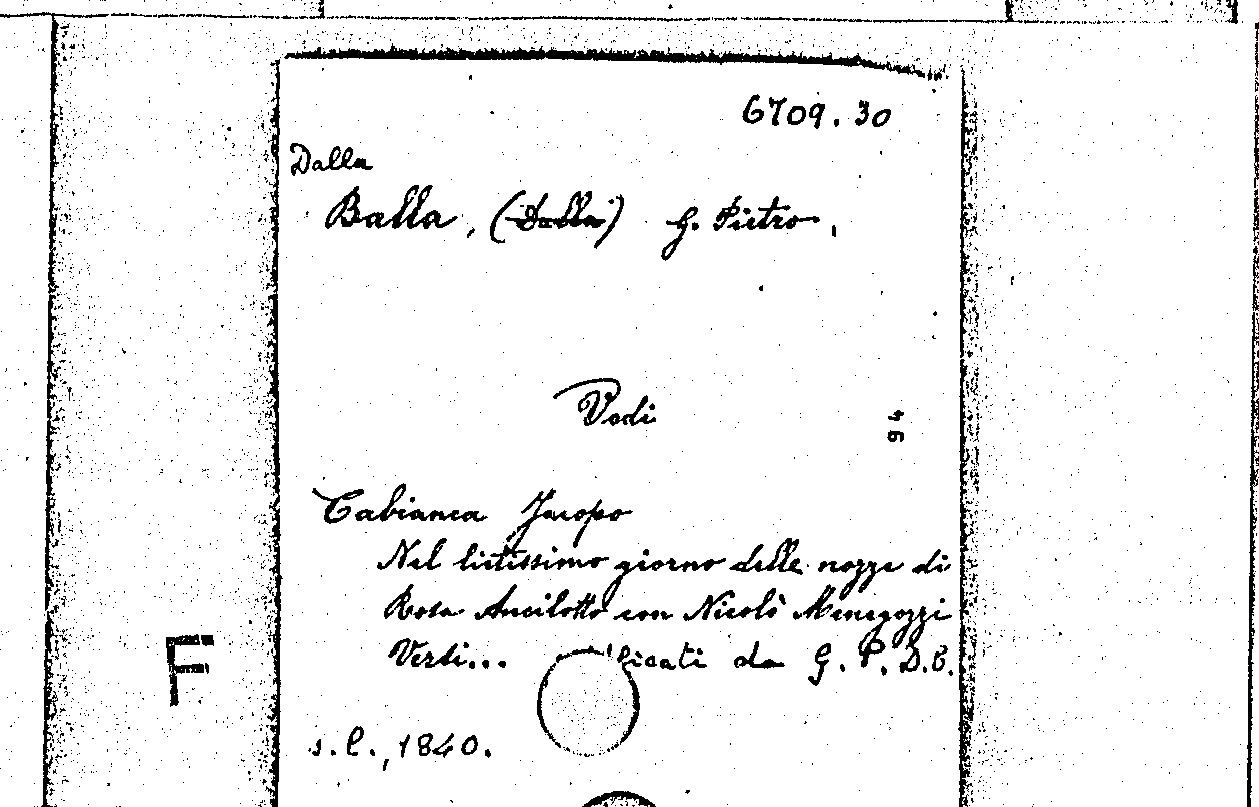 6709.30
Dalla
Balla, (Dalla) G. Pietro,
Vedi
94
Cabianca Jacopo
Nel lietissimo giorno delle nozze di
Rosa Ancilotto con Nicolò Menegozzi
Versi... licati da G. P. D. B.
F
s.l., 1840.